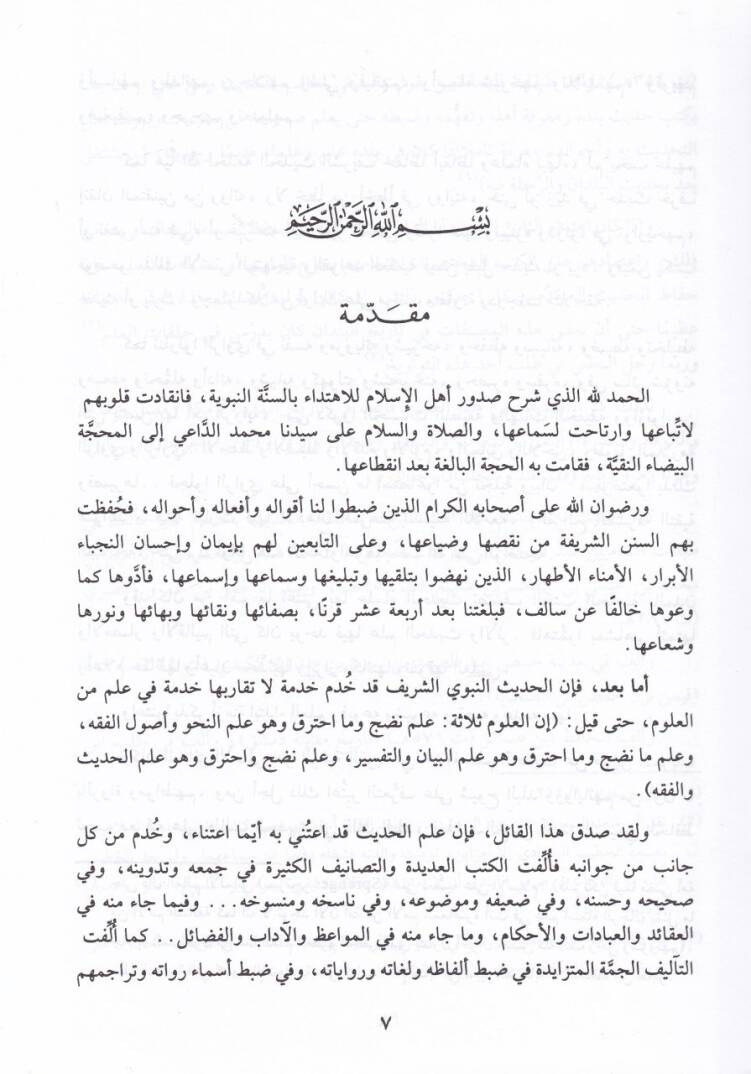 بسم الله الرحمن الرحيم
مقدّمة
الحمد لله الذي شرح صدور أهل الإسلام للاهتداء بالسنَّة النبوية، فانقادت قلوبهم
لاتّباعها وارتاحت لسَماعها، والصلاة والسلام على سيدنا محمد الدَّاعي إلى المحجَّة
البيضاء النقيَّة، فقامت به الحجة البالغة بعد انقطاعها.
ورضوان الله على أصحابه الكرام الذين ضبطوا لنا أقواله وأفعاله وأحواله، فحُفظت
بهم السنن الشريفة من نقصها وضياعها، وعلى التابعين لهم بإيمان وإحسان النجباء
الأبرار، الأمناء الأطهار، الذين نهضوا بتلقيها وتبليغها وسماعها وإسماعها، فأدَّوها كما
وعوها خالفًا عن سالف، فبلغتنا بعد أربعة عشر قرنًا، بصفائها ونقائها وبهائها ونورها
وشعاعها.
أما بعد، فإن الحديث النبوي الشريف قد خُدم خدمة لا تقاربها خدمة في علم من
العلوم، حتى قيل: (إن العلوم ثلاثة: علم نضج وما احترق وهو علم النحو وأصول الفقه،
وعلم ما نضج وما احترق وهو علم البيان والتفسير، وعلم نضج واحترق وهو علم الحديث
والفقه).
ولقد صدق هذا القائل، فإن علم الحديث قد اعتُني به أيّما اعتناء، وخُدم من كل
جانب من جوانبه فأُلِّفت الكتب العديدة والتصانيف الكثيرة في جمعه وتدوينه، وفي
صحيحه وحسنه، وفي ضعيفه وموضوعه، وفي ناسخه ومنسوخه... وفيما جاء منه في
العقائد والعبادات والأحكام، وما جاء منه في المواعظ والآداب والفضائل.. كما أُلِّفت
التآليف الجمَّة المتزايدة في ضبط ألفاظه ولغاته ورواياته، وفي ضبط أسماء رواته وتراجمهم
٧